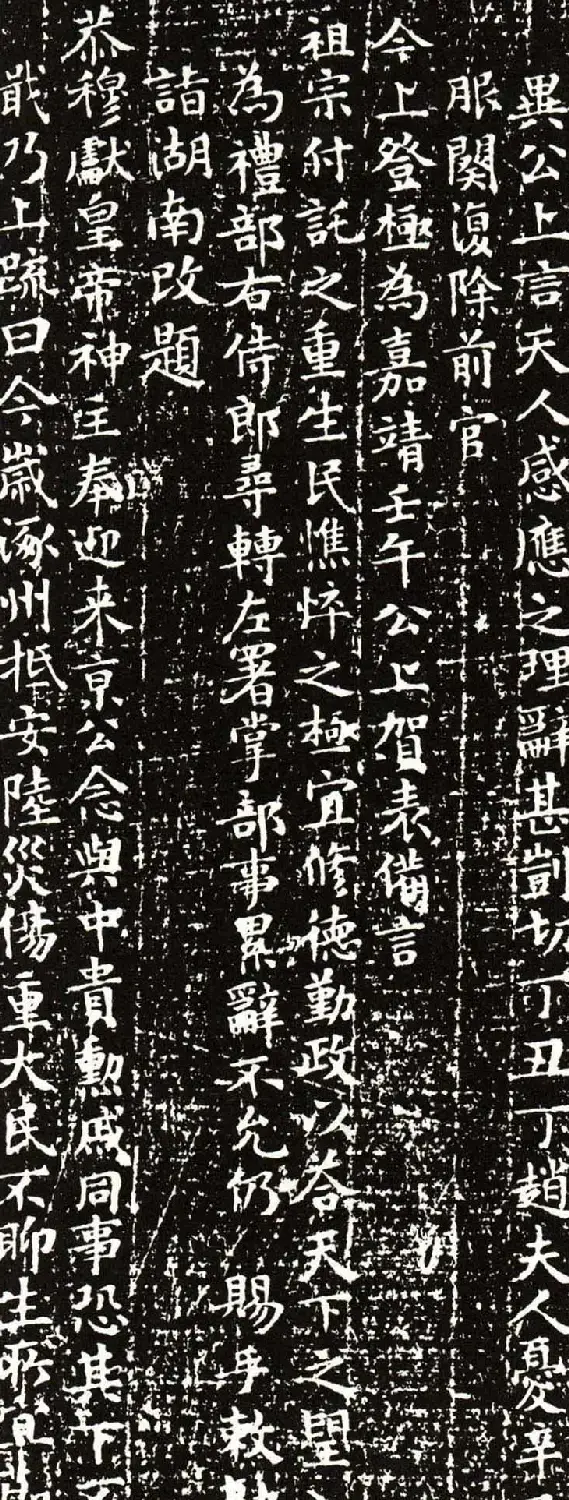 異公上言天人感應之理辭甚剴切丁丑丁趙夫人憂辛
服闋復除前官
今上登極為嘉靖壬午公上賀表備言
祖宗付託之重生民憔悴之極宜修德勤政以答天下之望
為禮部右侍郎尋轉左署掌部事累辭不允仍 賜手敕
詣湖南改題
恭穆獻皇帝神主奉迎来京公念與中貴勲戚同事恐其下不
戢乃上疏曰今歲涿州抵安陸災傷重大民不聊生所宜